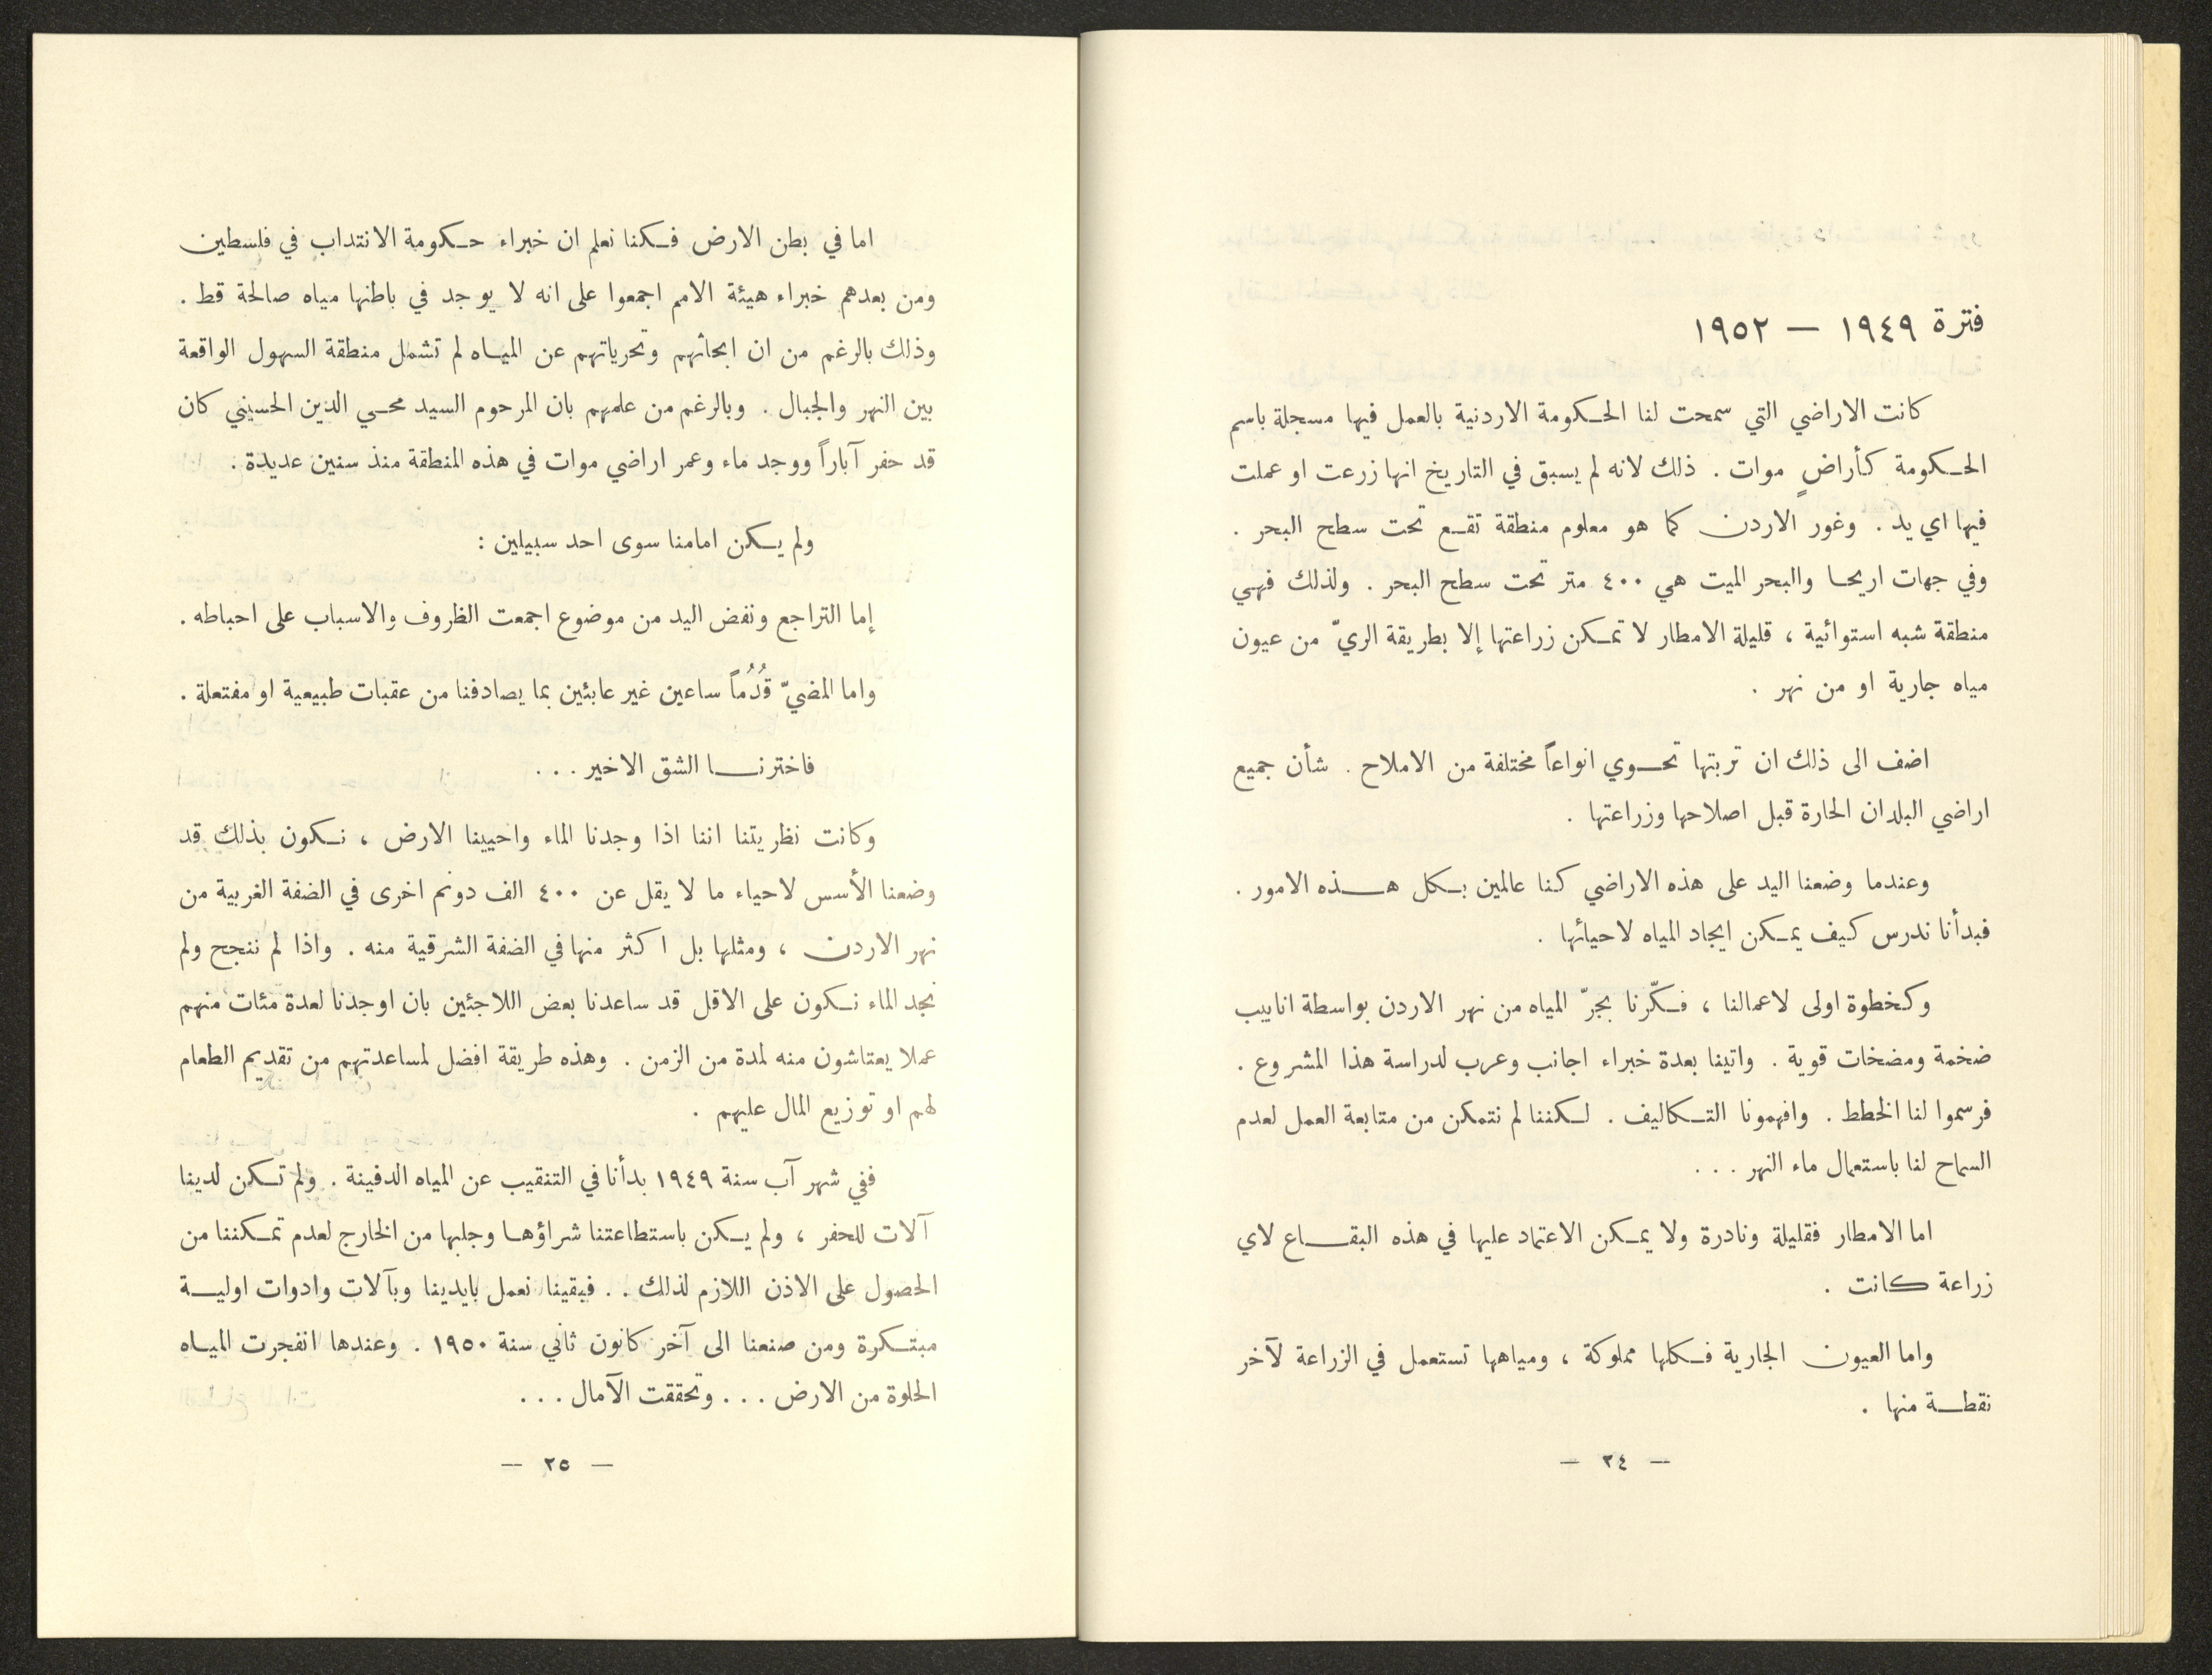 فترة ١٩٤٩ — ١٩٥٢
كانت الاراضي التي سمحت لنا الحكومة الاردنية بالعمل فيها مسجلة باسم
الحكومة كأراضٍ موات . ذلك لانه لم يسبق في التاريخ انها زرعت او عملت
فيها اي يد . وغور الاردن كما هو معلوم منطقة تقع تحت سطح البحر .
وفي جهات اريحا والبحر الميت هي ٤٠٠ متر تحت سطح البحر . ولذلك فهي
منطقة شبه استوائية ، قليلة الامطار لا تمكن زراعتها إلا بطريقة الريّ من عيون
مياه جارية او من نهر .
اضف الى ذلك ان تربتها تحوي انواعاً مختلفة من الاملاح . شأن جميع
اراضي البلدان الحارة قبل اصلاحها وزراعتها .
وعندما وضعنا اليد على هذه الاراضي كنا عالمين بكل هذه الامور .
فبدأنا ندرس كيف يمكن ايجاد المياه لاحيائها .
وكخطوة اولى لاعمالنا ، فكّرنا بجرّ المياه من نهر الاردن بواسطة انابيب
ضخمة ومضخات قوية . واتينا بعدة خبراء اجانب وعرب لدراسة هذا المشروع .
فرسموا لنا الخطط . وافهمونا التكاليف . لكننا لم نتمكن من متابعة العمل لعدم
السماح لنا باستعمال ماء النهر . . .
اما الامطار فقليلة ونادرة ولا يمكن الاعتماد عليها في هذه البقاع لاي
زراعة كانت .
واما العيون الجارية فكلها مملوكة ، ومياهها تستعمل في الزراعة لآخر
نقطة منها .
— ٢٤ —
اما في بطن الارض فكنا نعلم ان خبراء حكومة الانتداب في فلسطين
ومن بعدهم خبراء هيئة الامم اجمعوا على انه لا يوجد في باطنها مياه صالحة قط .
وذلك بالرغم من ان ابحاثهم وتحرياتهم عن المياه لم تشمل منطقة السهول الواقعة
بين النهر والجبال . وبالرغم من علمهم بان المرحوم السيد محي الدين الحسيني كان
قد حفر آباراً ووجد ماء وعمر اراضي موات في هذه المنطقة منذ سنين عديدة .
ولم يكن امامنا سوى احد سبيلين :
إما التراجع ونفض اليد من موضوع اجمعت الظروف والاسباب على احباطه .
واما المضيّ قُدُماً ساعين غير عابئين بما يصادفنا من عقبات طبيعية او مفتعلة .
فاخترنا الشق الاخير . . .
وكانت نظريتنا اننا اذا وجدنا الماء واحيينا الارض ، نكون بذلك قد
وضعنا الأسس لاحياء ما لا يقل عن ٤٠٠ الف دونم اخرى في الضفة الغربية من
نهر الاردن ، ومثلها بل اكثر منها في الضفة الشرقية منه . واذا لم ننجح ولم
نجد الماء نكون على الاقل قد ساعدنا بعض اللاجئين بان اوجدنا لعدة مئات منهم
عملا يعتاشون منه لمدة من الزمن . وهذه طريقة افضل لمساعدتهم من تقديم الطعام
لهم او توزيع المال عليهم .
ففي شهر آب سنة ١٩٤٩ بدأنا في التنقيب عن المياه الدفينة . ولم تكن لدينا
آلات للحفر ، ولم يكن باستطاعتنا شراؤها وجلبها من الخارج لعدم تمكننا من
الحصول على الاذن اللازم لذلك . . فبقينا نعمل بايدينا وبآلات وادوات اولية
مبتكرة ومن صنعنا الى آخر كانون ثاني سنة ١٩٥٠ . وعندها انفجرت المياه
الحلوة من الارض . . . وتحققت الآمال . . .
— ٢٥ —